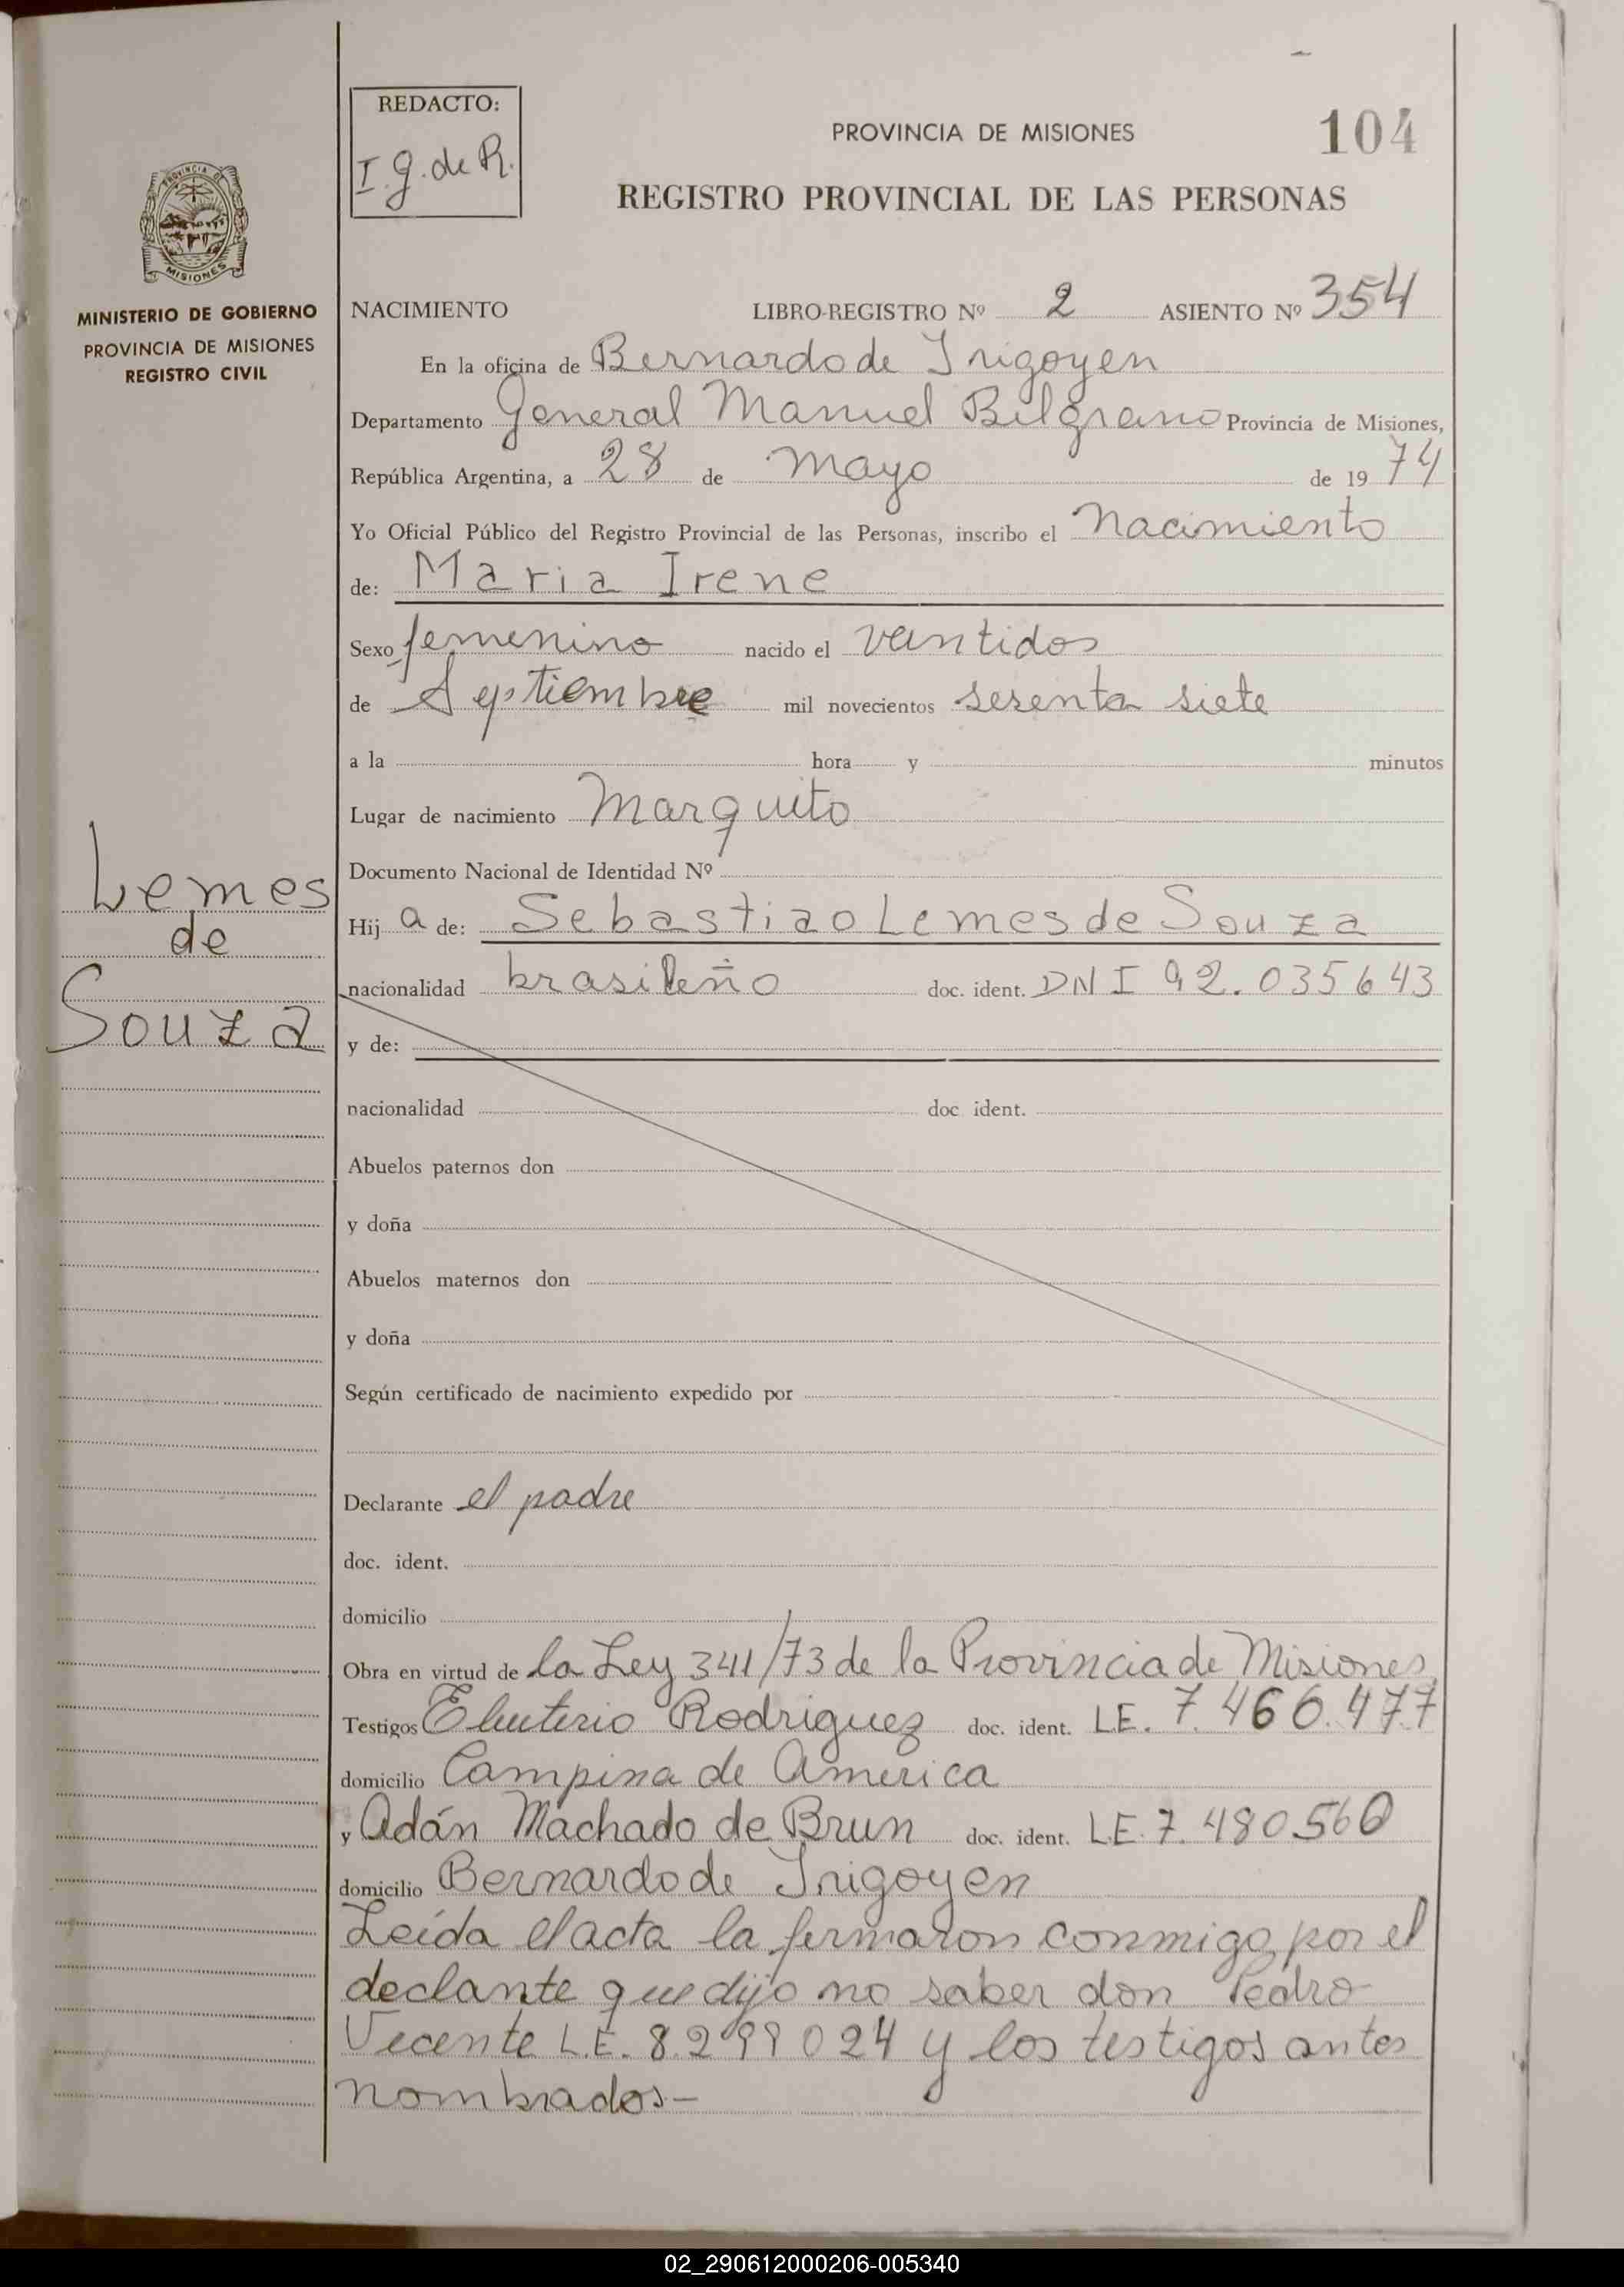 REDACTO:
I. g. de R.
PROVINCIA DE MISIONES
104
REGISTRO PROVINCIAL DE LAS PERSONAS
PROVINCIA DE
MISIONES
MINISTERIO DE GOBIERNO
PROVINCIA DE MISIONES
REGISTRO CIVIL
NACIMIENTO LIBRO-REGISTRO Nº 2 ASIENTO Nº 354
En la oficina de Bernardo de Irigoyen
Departamento General Manuel Belgrano Provincia de Misiones,
República Argentina, a 28 de mayo de 1974
Yo Oficial Público del Registro Provincial de las Personas, inscribo el Nacimiento
de: Maria Irene
Sexo femenino nacido el veintidos
de Septiembre mil novecientos sesenta siete
a la hora y minutos
Lugar de nacimiento Marquito
Documento Nacional de Identidad Nº
Lemes
de
Souza
Hija de: Sebastiao Lemes de Souza
nacionalidad brasileño doc. ident. DNI 92.035643
y de:
nacionalidad doc. ident.
Abuelos paternos don
y doña
Abuelos maternos don
y doña
Según certificado de nacimiento expedido por
Declarante el padre
doc. ident.
domicilio
Obra en virtud de la Ley 341/73 de la Provincia de Misiones
Testigos Eleuterio Rodriguez doc. ident. LE. 7.466.477
domicilio Campina de America
y Adán Machado de Brun doc. ident. LE. 7.480560
domicilio Bernardo de Irigoyen
Leída el acta la firmaron conmigo, por el
declante que dijo no saber don Pedro
Vecente L.E. 8.299024 y los testigos antes
nombrados-
02_290612000206-005340